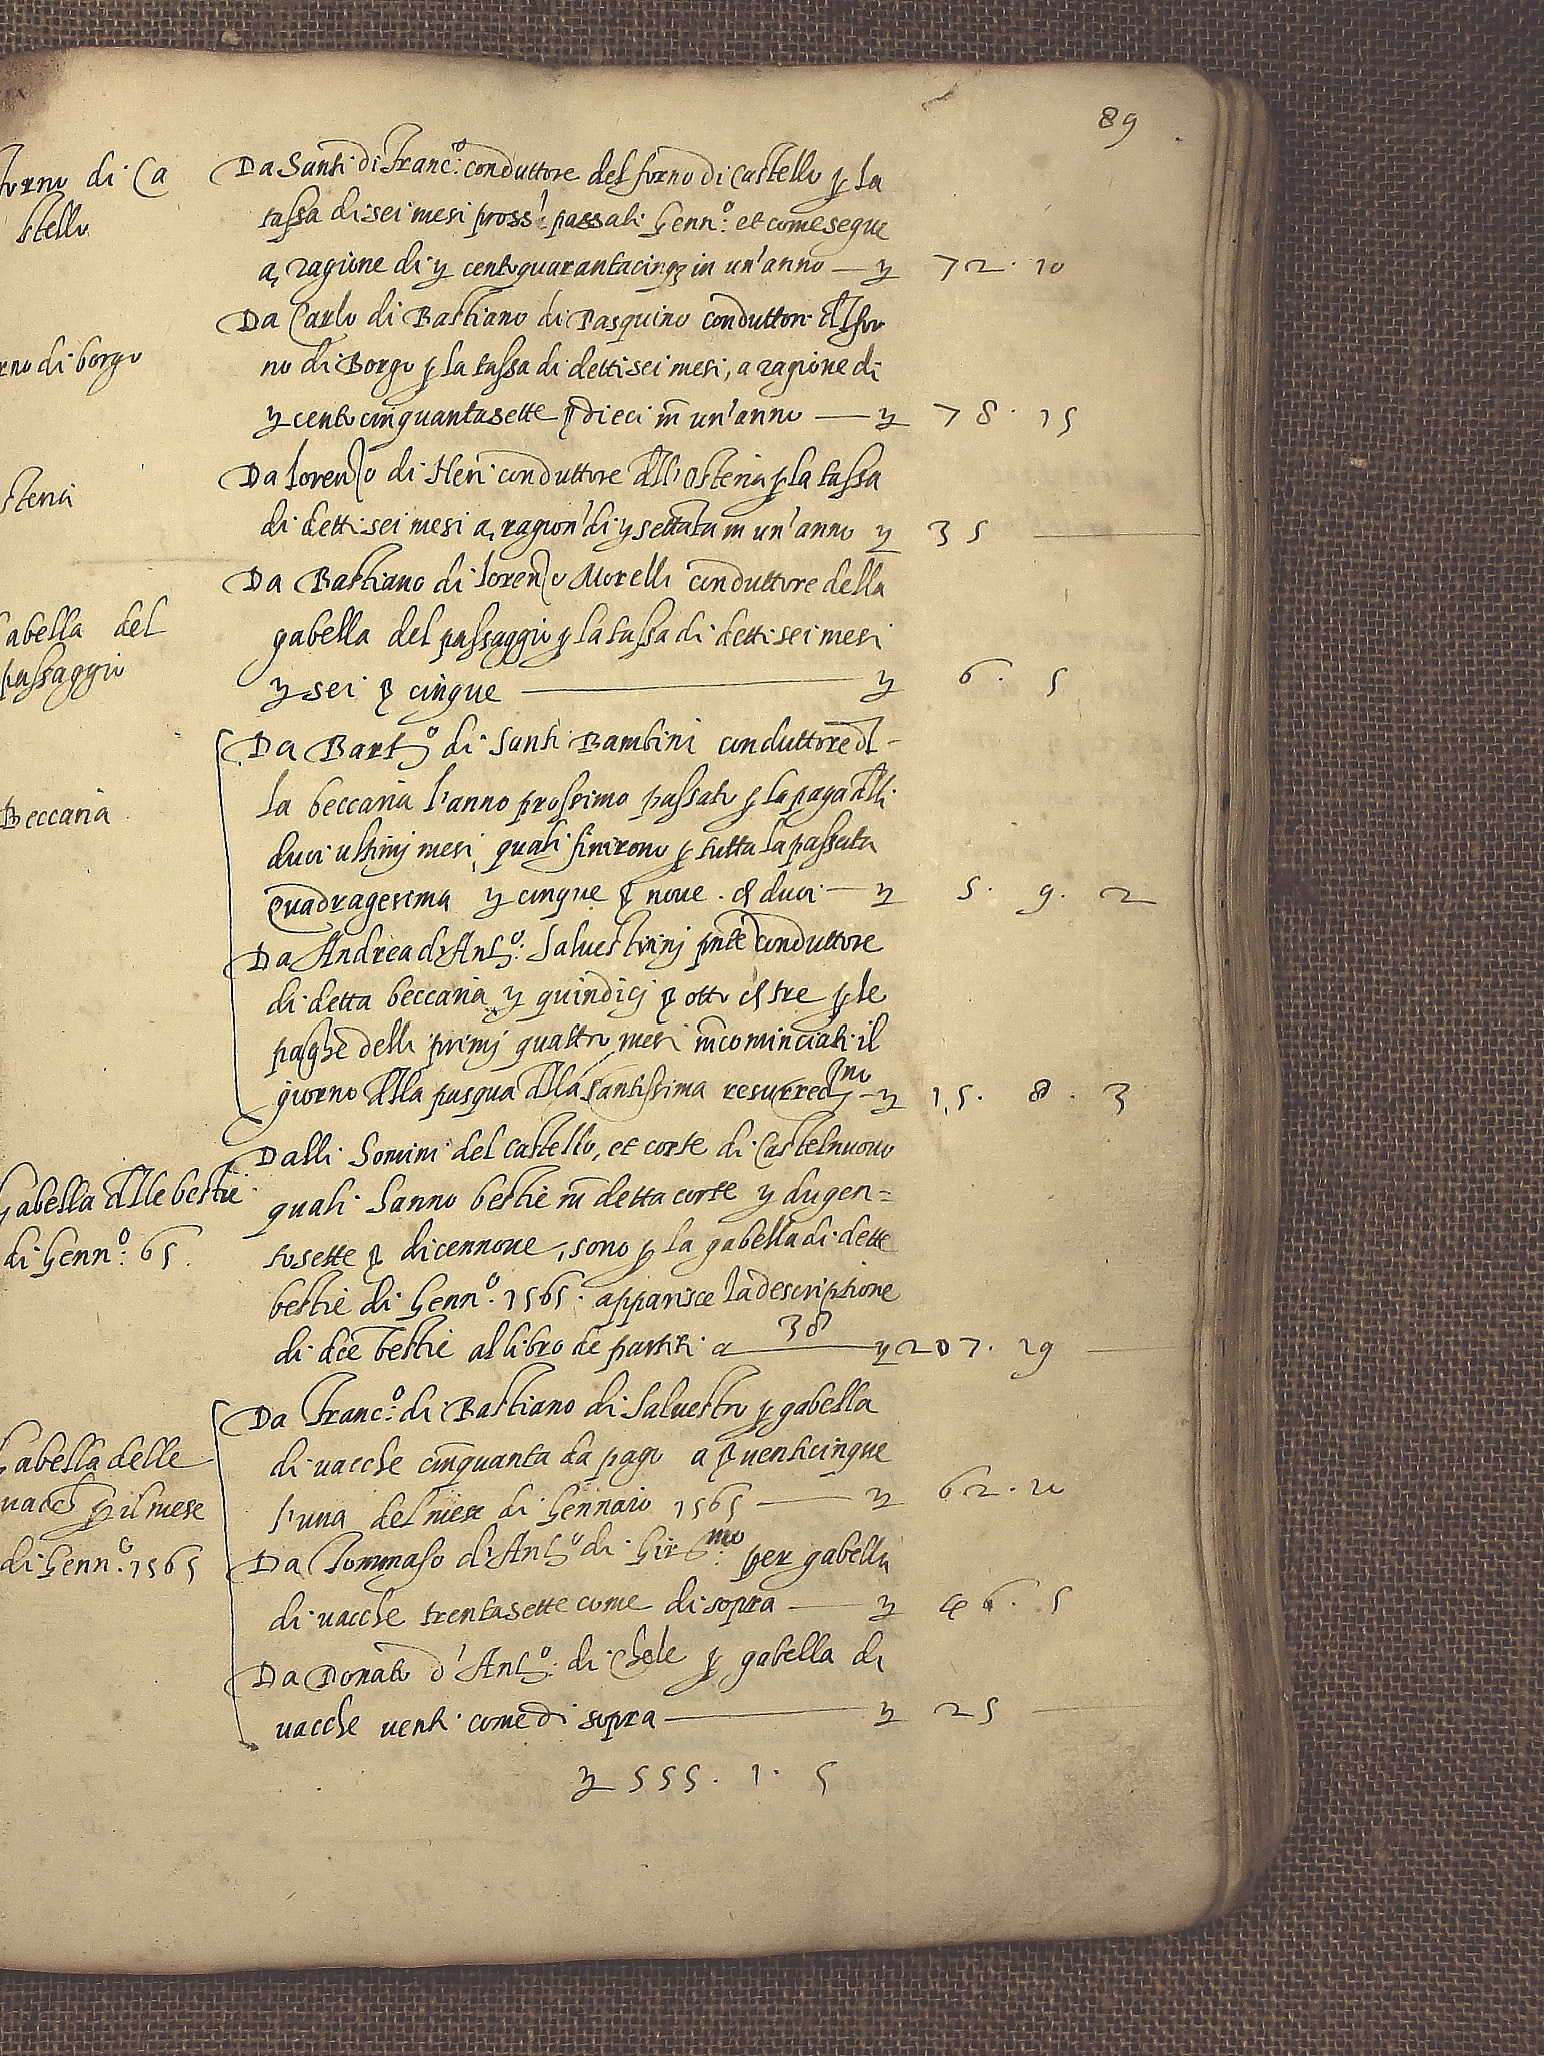 89
forno di Ca
stello
Da Santi di Franc.º conduttore del forno di Castello p la
tassa di sei mesi pross.i passati Genn.º et come segue
a ragione di ɣ centoquarantacinq in un'anno — ɣ 72 . 10
rno di borgo
Da Carlo di Bastiano di Pasquino conduttor del for
no di Borgo p la tassa di detti sei mesi, a ragione di
ɣ centocinquantasette β dieci in un'anno — ɣ 78 . 15
steria
Da Lorenzo di Neri conduttore dell'Osteria p la tassa
di detti sei mesi a ragion' di ɣ settāta in un'anno ɣ 35 —
abella del
passaggio
Da Bastiano di Lorenzo Morelli conduttore della
gabella del passaggio p la tassa di detti sei mesi
ɣ sei β cinque — ɣ 6 . 5
Beccaria
Da Barth.º di Santi Bambini conduttore del-
la beccaria l'anno prossimo passato p la paga delli
duoi ultimj mesi, quali finirono p tutta la passata
Quadragesima ɣ cinque β noue . d duoi — ɣ 5 . 9 . 2
Da Andrea d'Ant.º Saluestrinj pnte conduttore
di detta beccaria ɣ quindicj β otto d tre p le
paghe delli primj quattro mesi incominciati il
giorno della pasqua della santissima resurrectno — ɣ 15 . 8 . 3
Gabella delle bestie
di Genn.º 65.
Dalli homini del castello, et corte di Castelnuouo
quali hanno bestie in detta corte ɣ dugen=
tosette β dicennoue, sono p la gabella di dette
bestie di Genn.º 1565. apparisce la descriptione
di dce bestie al libro de partiti a 38 — ɣ 207 . 19 —
Gabella delle
uacche p il mese
di Genn.º 1565
Da Franc.º di Bastiano di Saluestro p gabella
di uacche cinquanta da pago a β uenticinque
l'una del mese di Gennaio 1565 — ɣ 62 . 10
Da Tommaso d'Ant.º di Girmo per gabella
di uacche trentasette come di sopra — ɣ 46 . 5
Da Donato d'Ant.º di Chele p gabella di
uacche uenti come di sopra — ɣ 25 —
ɣ 555 . 1 . 5